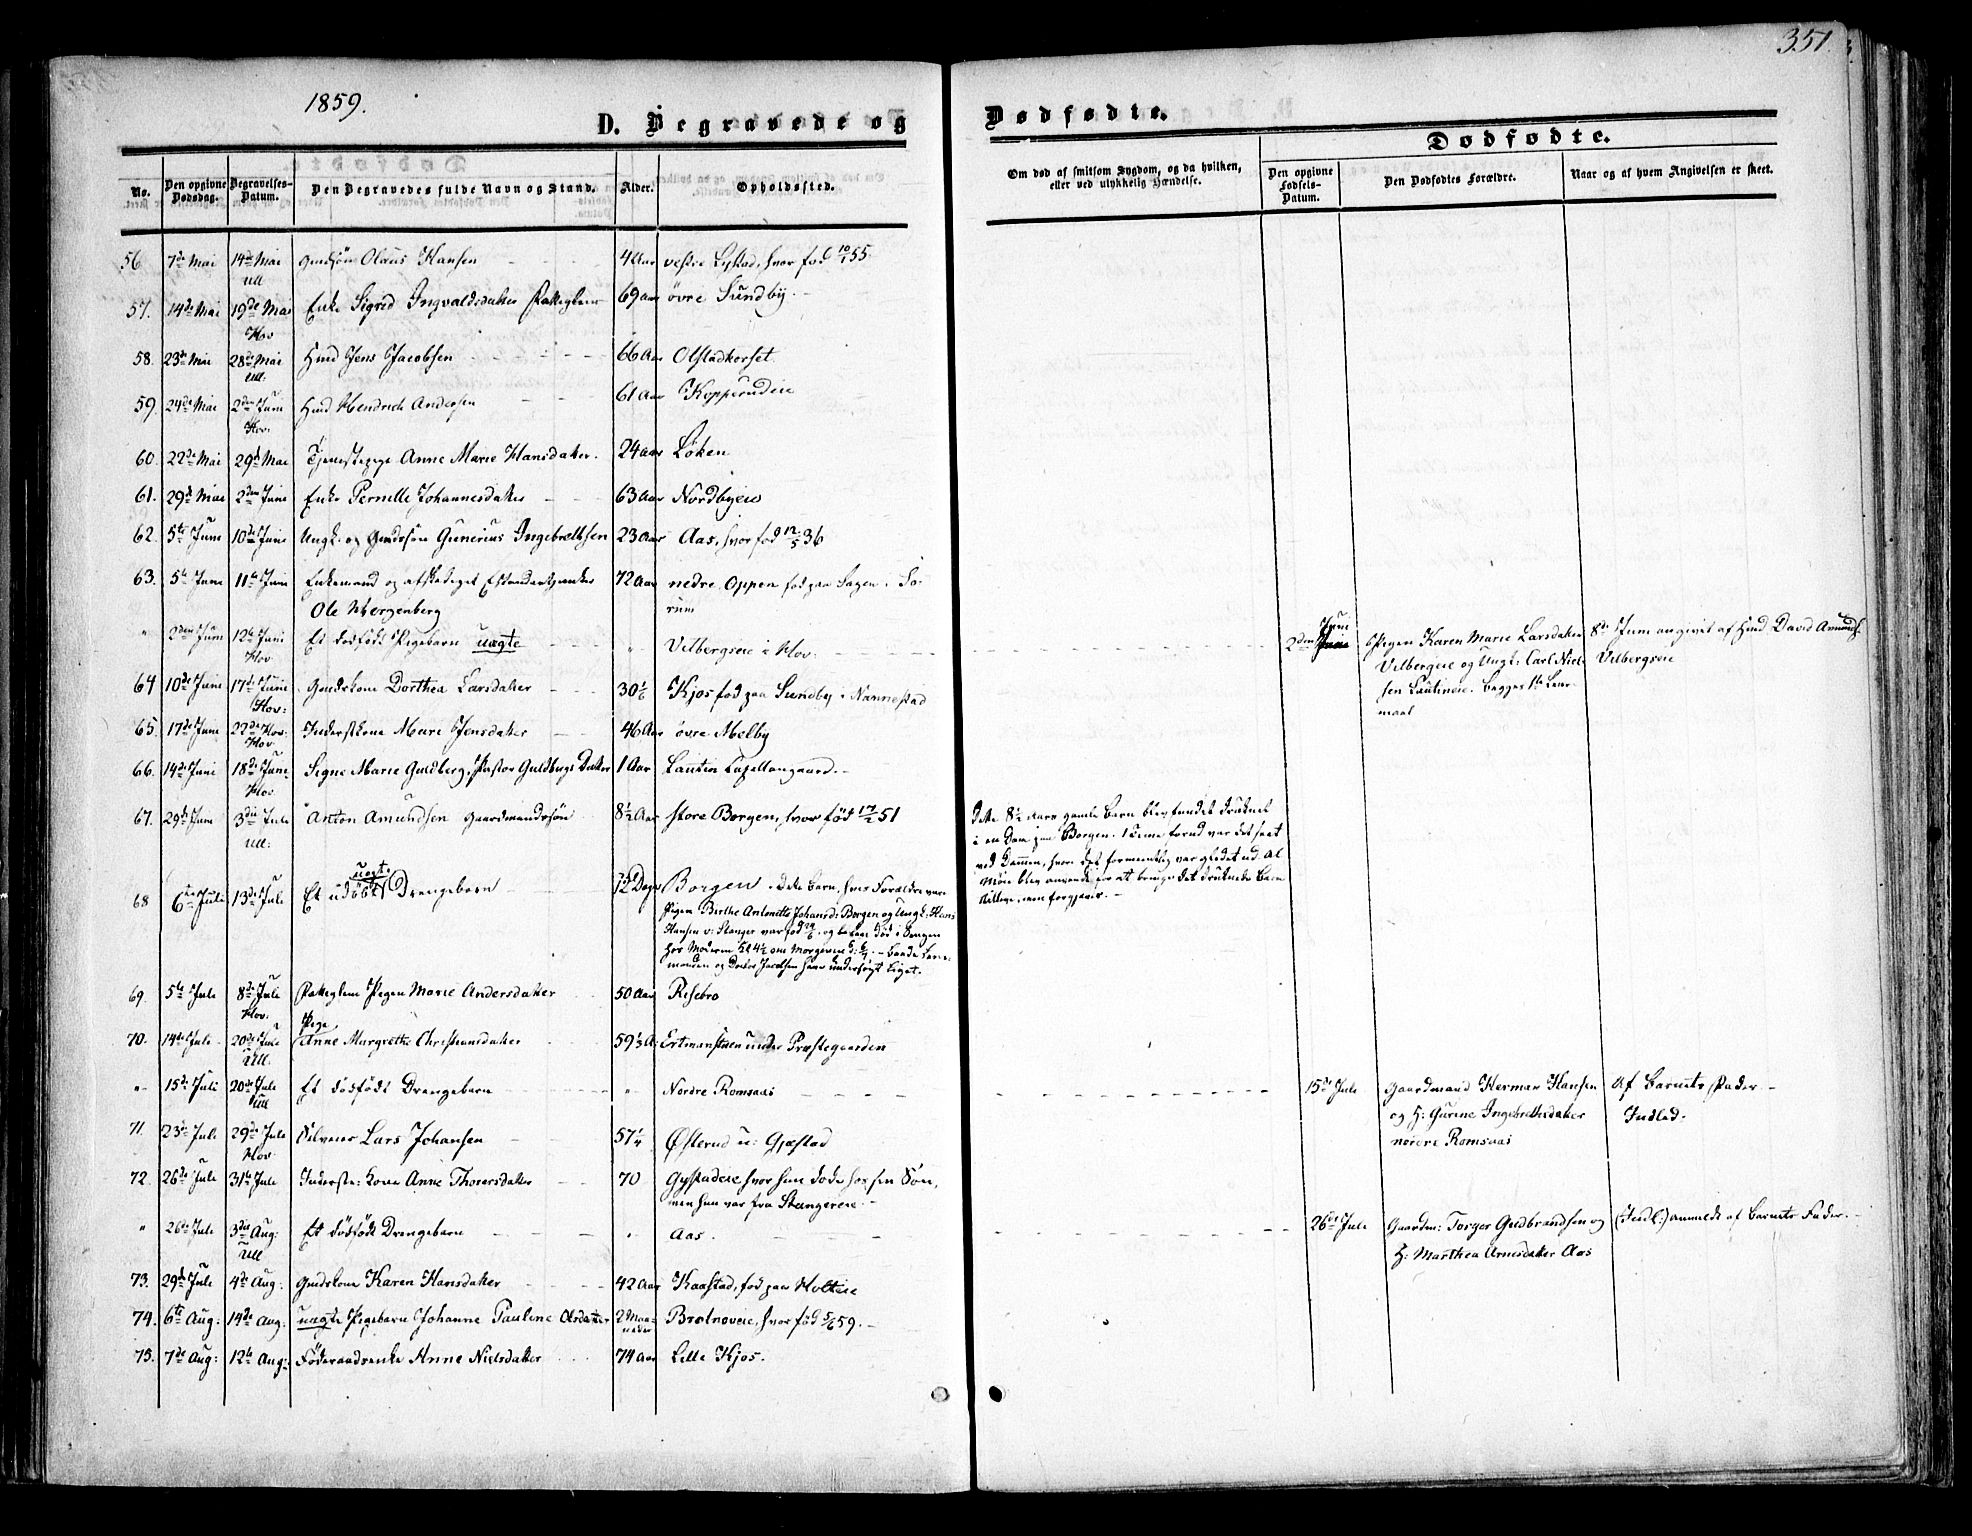 351
1859.
D. Begravede og
Dødfødte.
Dødfødte.
No.
Den opgivne Dødsdag.
Begravelses-Datum.
Den Begravedes fulde Navn og Stand.
Alder.
Opholdssted.
Om død af smitsom Sygdom, og da hvilken, eller ved ulykkelig Hændelse.
Den opgivne Fødsels-Datum.
Den Dødfødtes Forældre.
Naar og af hvem Angivelsen er skeet.
56 7de Mai 14de Mai Ull Gmdsøn Olaus Hansen 4 Aar vestre Lystad, hvor fød 10/1 55
57. 14de Mai 19de Mai Hov Enke Sigrid Ingvaldsdatter 69 aar øvre Sundby.
58. 23de Mai 28de Mai Ull: Hmd Jens Jacobsen 66 Aar Olstadkorset.
59. 24de Mai 2den Juni Hov: Hmd Hendrich Andersen 61 Aar Kopperudeie
60. 22de Mai 29de Mai Tjenestepige Anne Marie Hansdatter. 24 Aar Løken
61. 29de Mai 2den Juni Enke Pernille Johannesdatter 63 Aar Nordbyeie
62. 5te Juni 10de Juni Ungk. og Gmdssøn Gunerius Ingebrethsen 23 Aar Aas, hvor fød 12/5 36
63. 5te Juni 11te Juni Enkemand og afskediget
Ole Morgenberg 72 Aar nedre Oppen fød paa Hagen i Sørum
" 2den Juni 12te Juni Hov Et dødfødt Pigebarn uægte " Vilbergseie i Hov.
2den Juni Pigen Karen Marie Larsdatter
Vilbergeie og Ungk: Carl Nielsen Lautineie. begges 1te Leiermaal
8de Juni angivet af Hmd David Amunds.
Vilbergseie
64 10de Juni 17de Juni Hov: Gmdskone Dorthea Larsdatter 30 1/6 Kjos fød paa Sundby i Nannestad
65. 17de Juni 22de Hov Inderstkone Mari Jensdatter 46 Aar øvre Melby
66. 14de Juni 18de Juni Hov Signe Marie Guldberg, Pastor Guldbergs Datter 1 Aar Lautin Capellangaard.
67. 29de Juni 3die Jule Ull: Anton Amundsen Gaardmandssøn 8½ Aar store Borgen, hvor fød 17/2 51
Dette 8½ Aars gamle Barn blev fundet druknet
i en Dam paa Borgen. 1 Time forud var det seet
ved Dammen, hvori det formeentlig var gledet ud. Al
Møie blev anvendt for at bringe det druknede Barn
tillive, men forgjæves.
68 6te Juli 13de Jule Et udøbt uægte Drengebarn 12 Dage Borgen. Dette Barn, hvis Forældre vare
Pigen Birthe Antonette Johansd: Borgen og Ungk: Hans
Hansen v: Stanger var fød og befandt død i Sengen
hos Moderen Kl 4½ om Morgenen d: 6/7. Baade Lensmanden og Doctor Jacobsen have undersøgt Liget.
69. 5te Jule 8de Jule Hov: Pigen Marie Andersdatter 50 Aar Risebro
70. 14de Jule 20de Jule Ull. Pige Anne Margrethe Christiansdatter 59 1/3 A: Ertmanstuen under Præstegaarden
" 15de Juli 20de Jule Ull Et dødfødt Drengebarn " Nordre Romsaas
15de Jule Gaardmand Herman Hansen
og H: Gurine Ingebrethsdatter
nordre Romsaas
Af Barnets Fader
Indlad:
71. 23de Jule 29de Jule Hov Selveier Lars Johansen 57 ¼ Østerud u: Gjæstad
72. 26de Jule 31te Jule Inderste: Kone Anne Thoresdatter 70 Gystadeie hvor hun døde hos sin Søn,
men hun var fra Stangereie.
" 26de Jule 3die Aug: Ull Et dødfødt Drengebarn " Aas.
26de Jule Gaardm: Torger Gudbrandsen og
H: Marthea Arnesdatter Aas
(Indl:) anmeldt af Barnets Fader.
73. 29de Jule 4de Aug: Gmdskone Karen Hansdatter 42 Aar Kaastad, fød paa Holteie
74. 6te Aug: 14de Aug: uægte Pigebarn Johanne Pauline Olsdatter 2 Maaneder Brotnoveie, hvor fød 5/6 59.
75. 7de Aug: 12te Aug: Føderaadsenke Anne Nielsdatter 74 Aar Lille Kjos.